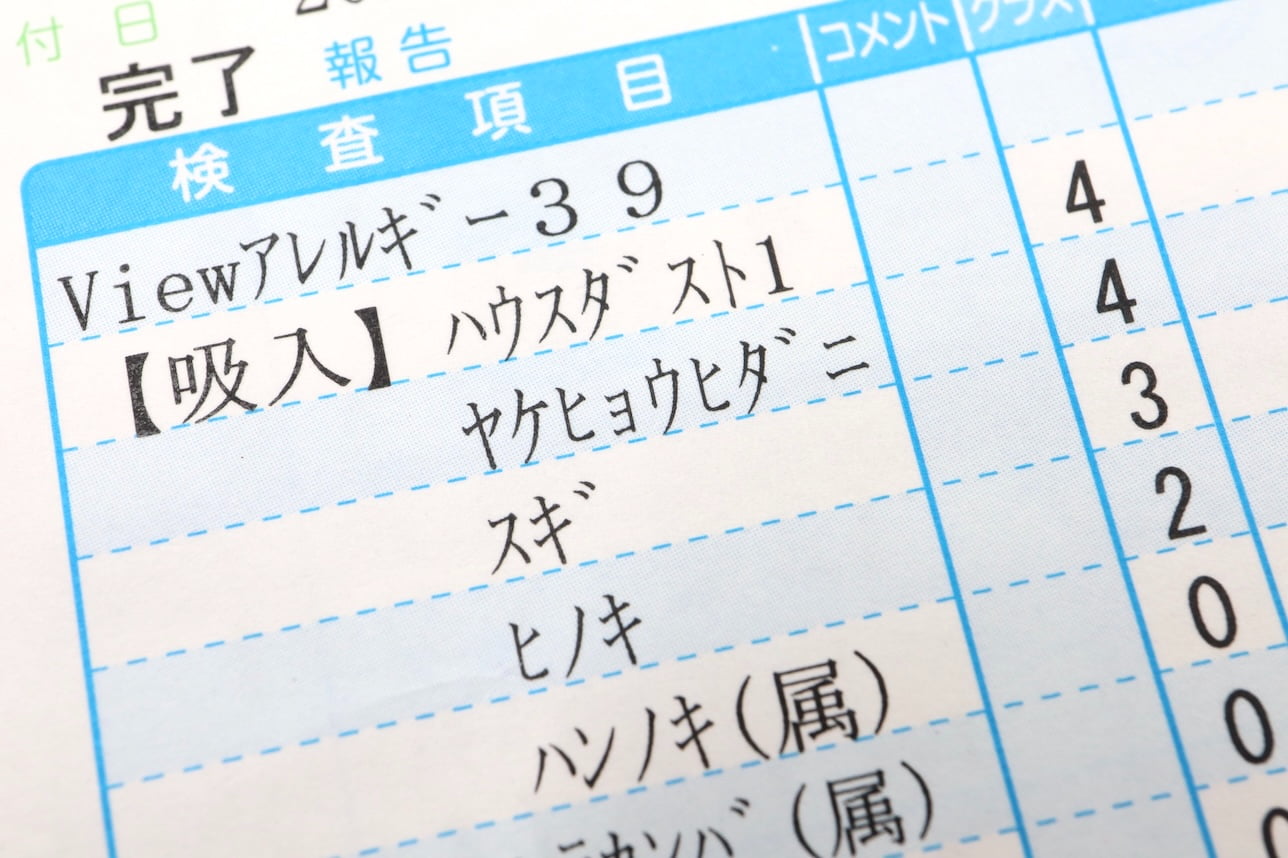 付 日
完了 報告
検査項目 コメント クラス
Viewアレルギー39
【吸入】 ハウスダスト1 4
ヤケヒョウヒダニ 4
スギ 3
ヒノキ 2
ハンノキ(属) 0
ラカンバ(属) 0